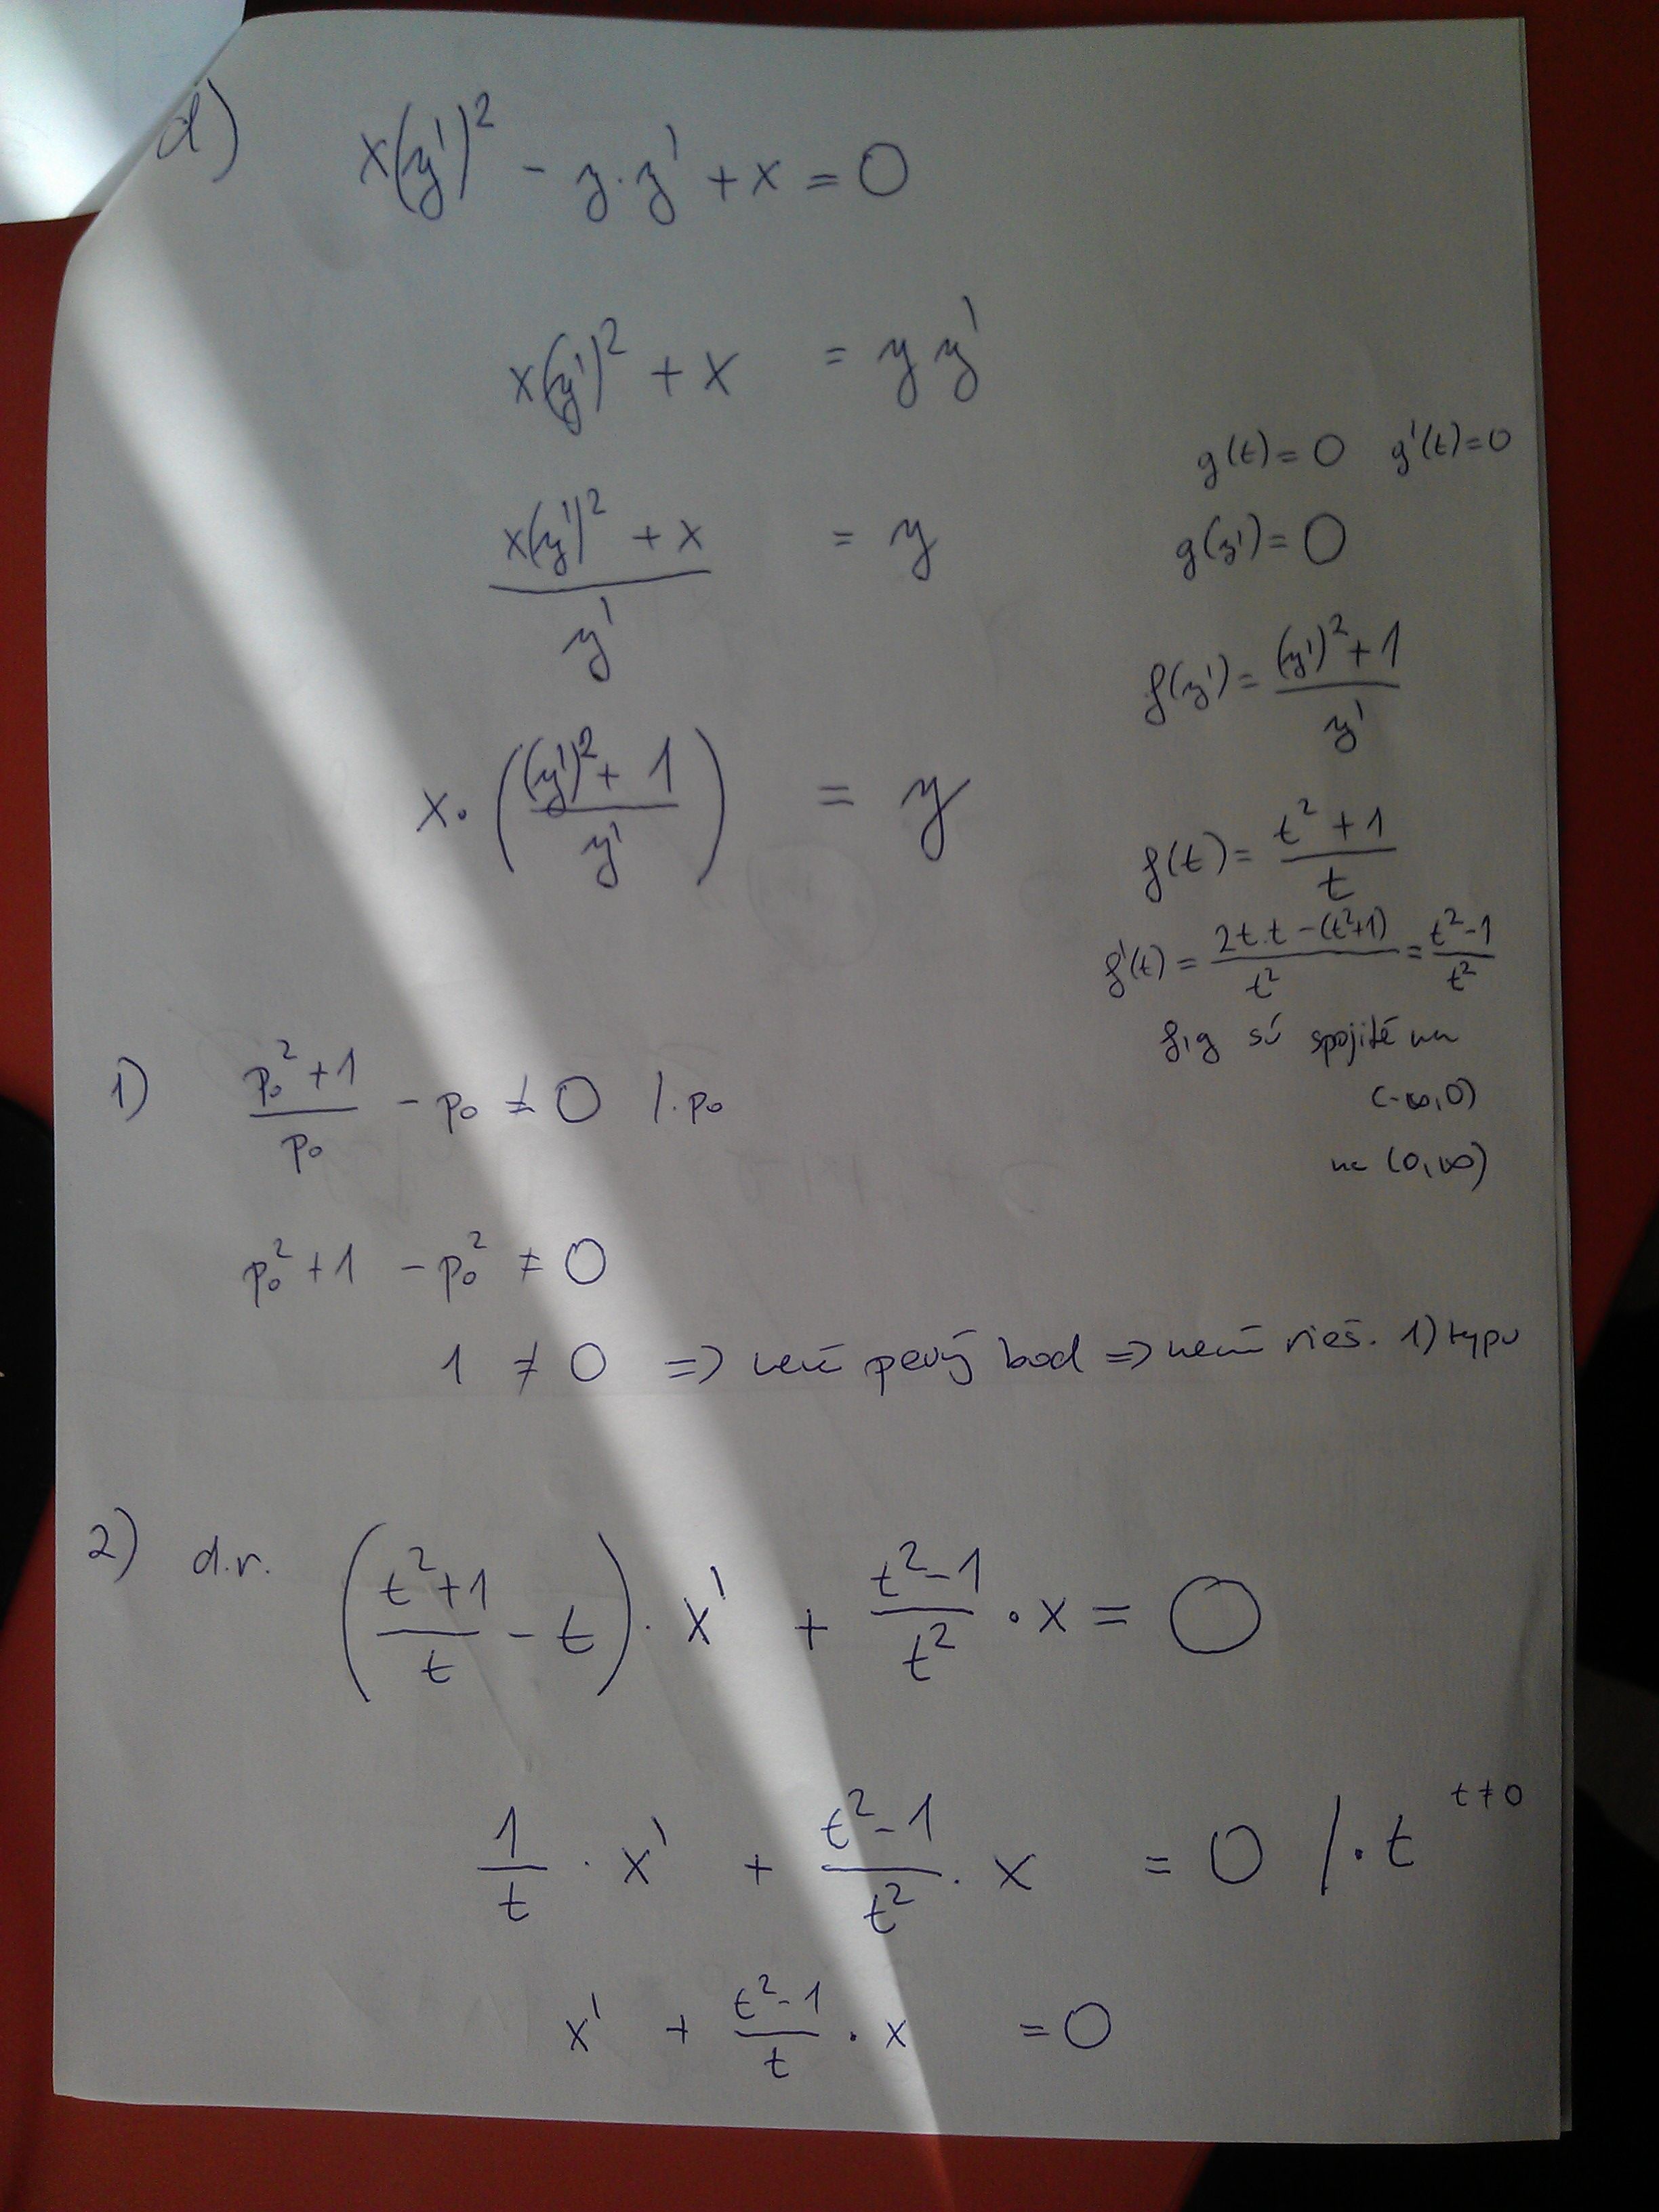 d) x(y')² - y·y' + x = 0
x(y')² + x = y y'
g(t) = 0 g'(t) = 0
g(y') = 0
(x(y')² + x) / y' = y
f(y') = ((y')² + 1) / y'
x·(((y')² + 1) / y') = y
f(t) = (t² + 1) / t
f'(t) = (2t.t - (t²+1)) / t² = (t²-1) / t²
f,g sú spojité na
(-∞,0)
na (0,∞)
1) (p₀² + 1) / p₀ - p₀ ≠ 0 /.p₀
p₀² + 1 - p₀² ≠ 0
1 ≠ 0 => není pevný bod => není rieš. 1) typu
2) d.r. ((t²+1) / t - t)· x' + (t²-1) / t² · x = 0
1/t · x' + (t²-1) / t² · x = 0 /·t t≠0
x' + (t²-1) / t · x = 0